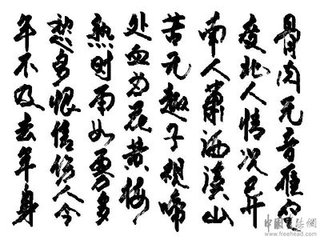 骨肉无音雁空
度北人情况异
南人萧洒溪山
苦无趣子规啼
处血为花黄梅
熟时雨如雾多
愁多恨信伤人今
年不及去年身
中国书法网
www.freehead.com